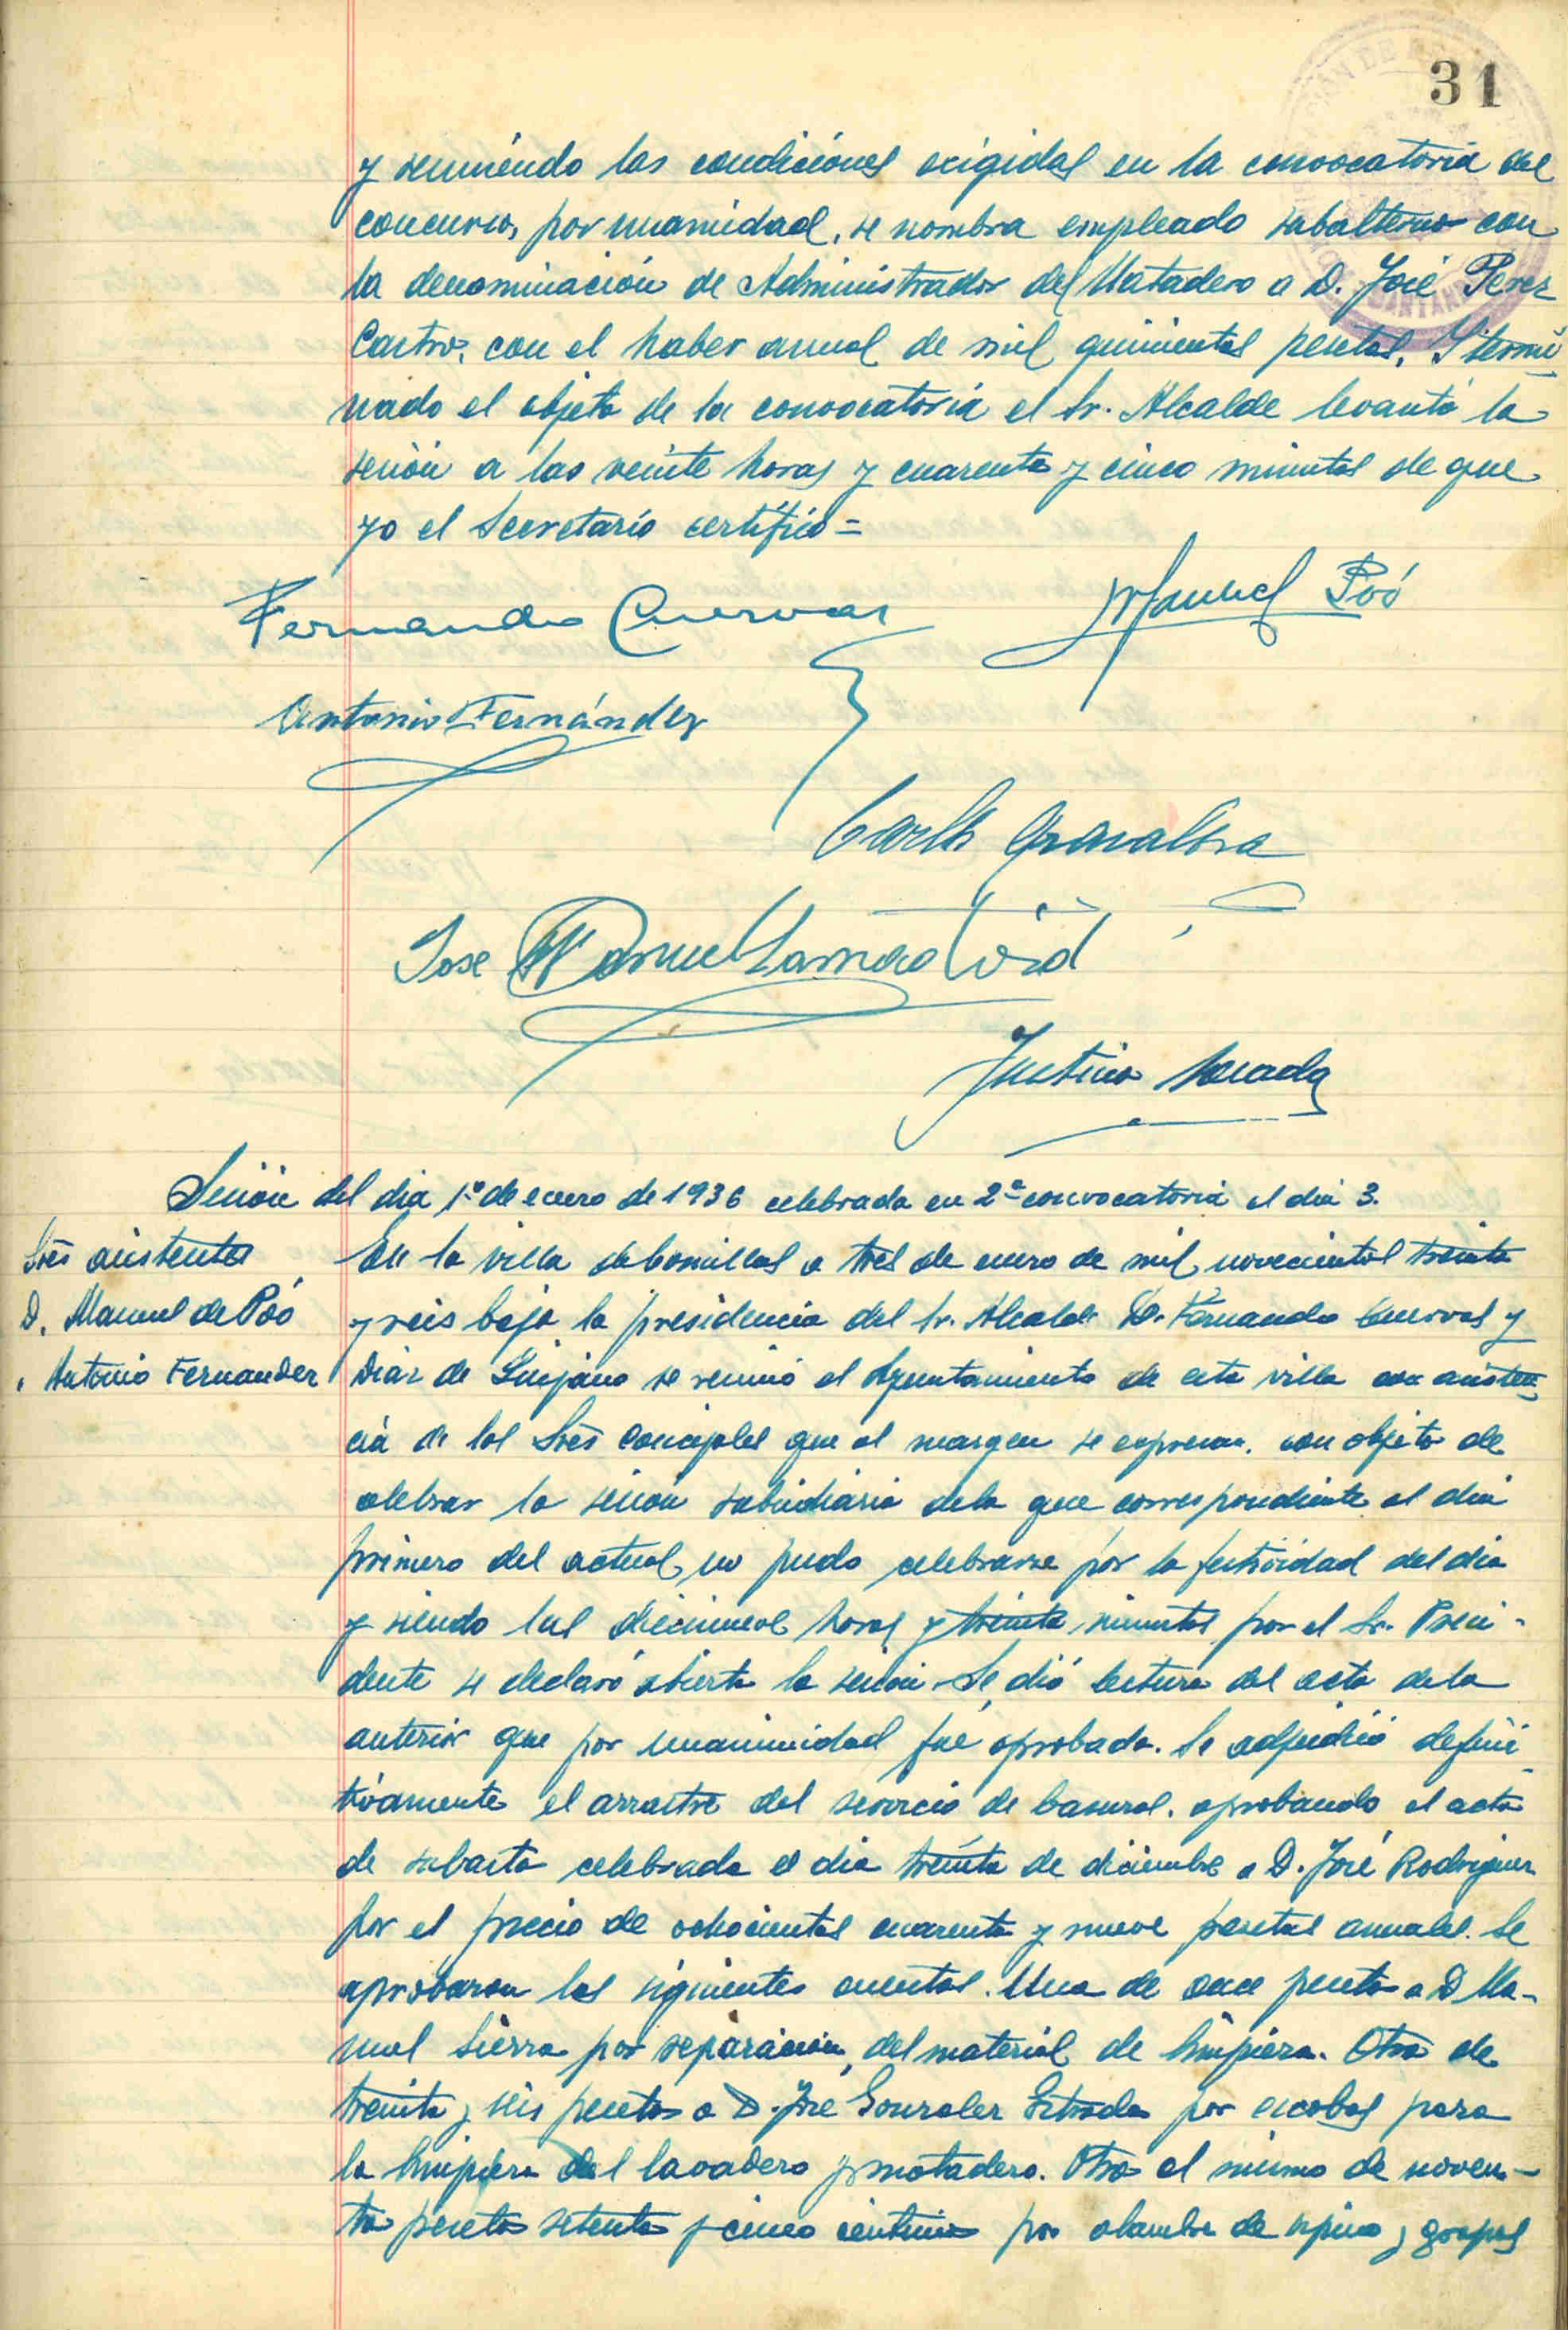 31
y reuniendo las condiciones exigidas en la convocatoria del
concurso, por unanimidad, se nombra empleado subalterno con
la denominación de Administrador del Matadero a D. José Perez
Castro, con el haber anual de mil quinientas pesetas. Y termi
nado el objeto de la convocatoria el Sr. Alcalde levantó la
sesión a las veinte horas y cuarenta y cinco minutos de que
yo el Secretario certifico=
Fernando Cuervas
Manuel Póo
Antonio Fernández
Carlos
Jose Manuel
Justino
Sesión del dia 1º de enero de 1936 celebrada en 2ª convocatoria el dia 3.
Sres asistentes
D. Manuel de Póo
" Antonio Fernandez
En la villa de Comillas a tres de enero de mil novecientos treinta
y seis bajo la presidencia del Sr. Alcalde D. Fernando Cuervas y
Diaz de Quijano se reunió el Ayuntamiento de esta villa con asisten
cia de los Sres Concejales que al margen se expresan. con objeto de
celebrar la sesión subsidiaria dela que correspondiente al dia
primero del actual no pudo celebrarse por la festividad del dia
y siendo las diecinueve horas y treinta minutos por el Sr. Presi-
dente se declaró abierta la sesión. Se dió lectura del acta dela
anterior que por unanimidad fué aprobada. Se adjudicó defini
tivamente el arrastre del servicio de basuras. aprobando el acta
de subasta celebrada el dia treinta de diciembre a D. José Rodriguez
por el precio de ochocientas cuarenta y nueve pesetas anuales. Se
aprobaron las siguientes cuentas. Una de once pesetas a D Ma-
nuel Sierra por reparación del material de limpieza. Otra de
treinta y seis pesetas a D. José Gonzalez Estrada por escobas para
la limpieza del lavadero y matadero. Otra al mismo de noven-
ta pesetas setenta y cinco centimos por alambre de espino y grapas